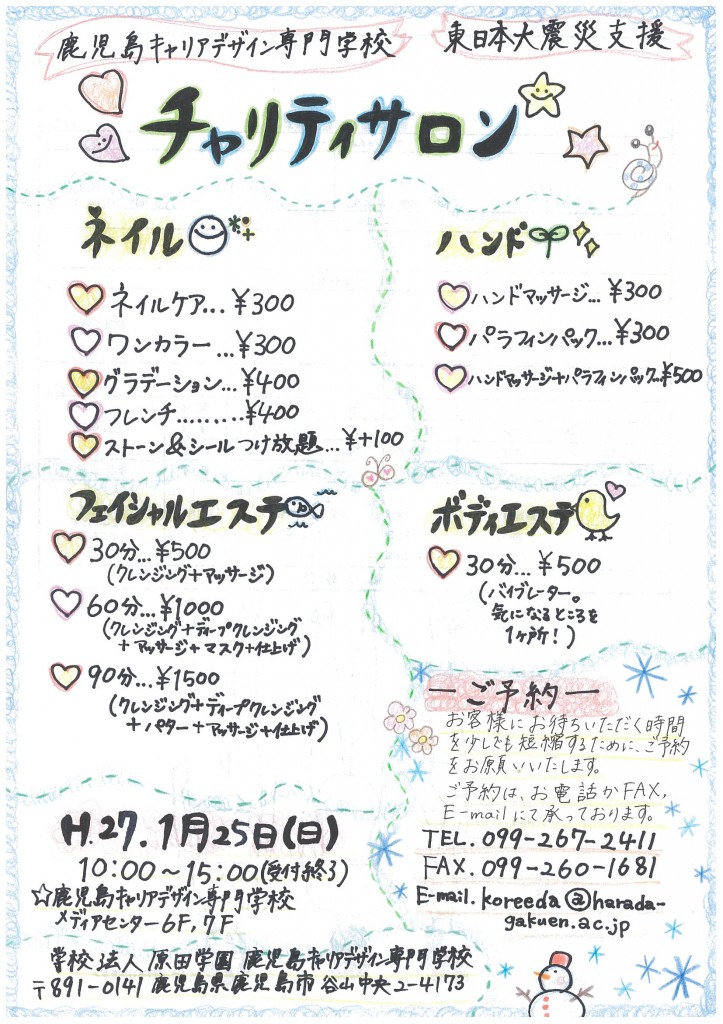 鹿児島キャリアデザイン専門学校
東日本大震災支援
チャリティサロン
ネイル
ネイルケア...¥300
ワンカラー...¥300
グラデーション...¥400
フレンチ........¥400
ストーン&シールつけ放題...¥+100
ハンド
ハンドマッサージ...¥300
パラフィンパック...¥300
ハンドマッサージ+パラフィンパック...¥500
フェイシャルエステ
30分...¥500
(クレンジング+マッサージ)
60分...¥1000
(クレンジング+ディープクレンジング
+マッサージ+マスク+仕上げ)
90分...¥1500
(クレンジング+ディープクレンジング
+パター+マッサージ+仕上げ)
ボディエステ
30分...¥500
(バイブレーター。
気になるところを
1ヶ所!)
ーご予約ー
お客様にお待ちいただく時間
を少しでも短縮するために、ご予約
をお願いいたします。
ご予約は、お電話かFAX,
E-mailにて承っております。
TEL.099-267-2411
FAX.099-260-1681
E-mail.koreeda@harada-
gakuen.ac.jp
H.27.1月25日(日)
10:00~15:00(受付終了)
☆鹿児島キャリアデザイン専門学校
メディアセンター6F,7F
学校法人 原田学園 鹿児島キャリアデザイン専門学校
〒891-0141 鹿児島県鹿児島市谷山中央2-4173